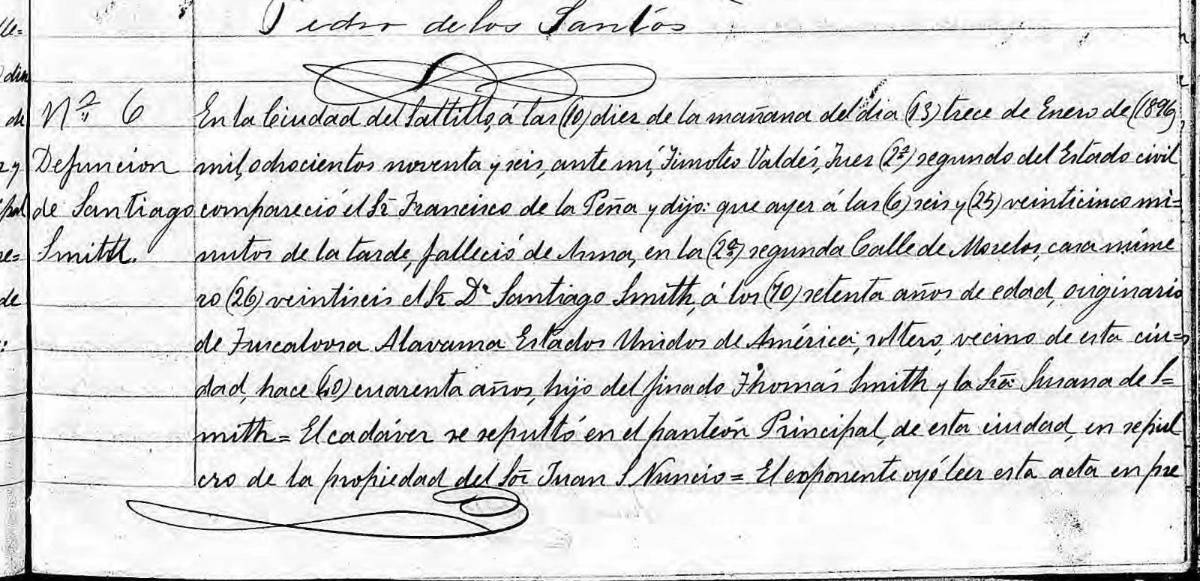 Pedro de los Santos
Nº 6
Defuncion
de Santiago
Smith.
En la Ciudad del Saltillo, á las (10) diez de la mañana del dia (13) trece de Enero de (1896,
mil, ochocientos noventa y seis, ante mí, Timoteo Valdés, Juez (2º) segundo del Estado civil
compareció el Sr. Francisco de la Peña y dijo: que ayer á las (6) seis y (25) veinticinco mi=
nutos de la tarde, falleció de Asma, en la (2ª) segunda Calle de Morelos, casa núme
ro (26) veintiseis el Sr. Dr. Santiago Smith, á los (70) setenta años de edad, originario
de Tuscaloosa Alavama Estados Unidos de América, soltero, vecino de esta ciu=
dad, hace (40) cuarenta años, hijo del finado Thomás Smith y la Sra. Susana de S=
mith= El cadáver se sepultó en el panteón Principal, de esta ciudad, en sepul
cro de la propiedad del Sor. Juan S Nuncio= El exponente oyó leer esta acta en pre